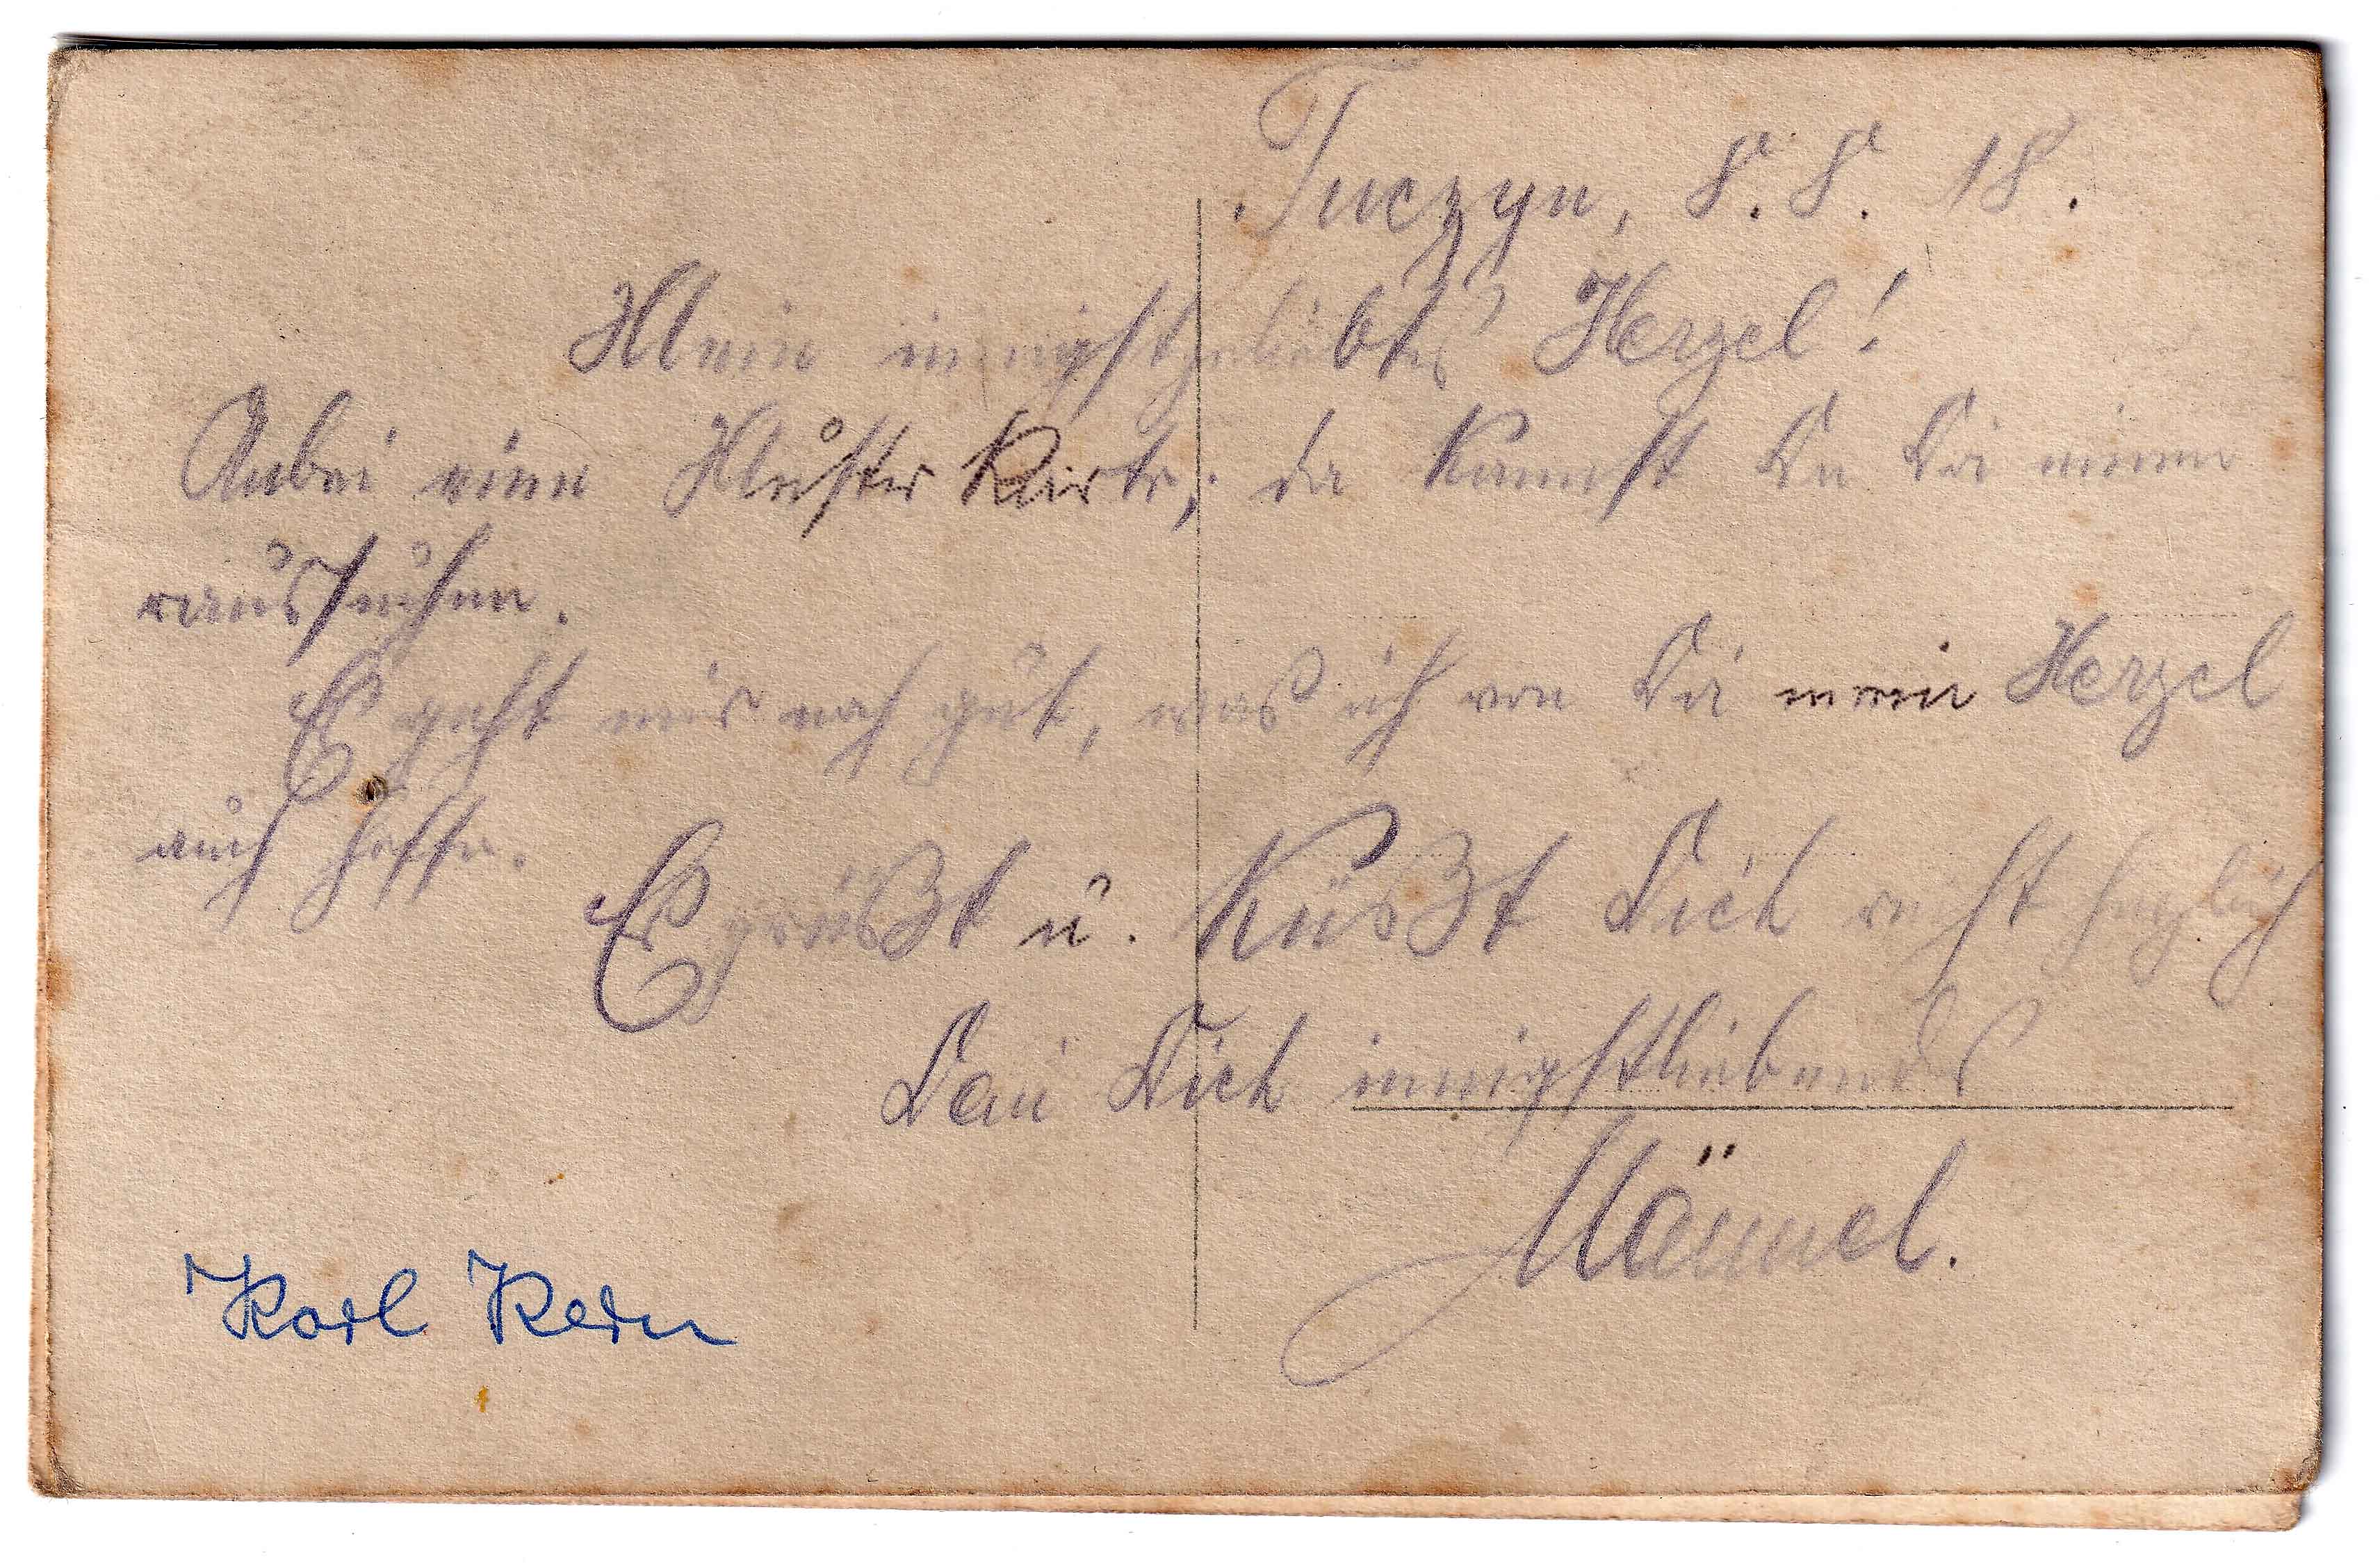 Tuczyn, 8.8.18.
Mein innigstgeliebtes Herzel!
Anbei eine Muster Karte, da kannst Du Dir einen
raussuchen.
Es geht mir noch gut, was ich von Dir mein Herzel
auch hoffe.
Es grüßt u. küßt Dich recht herzlich
Dein Dich innigstliebendes
Männel.
Karl Kern